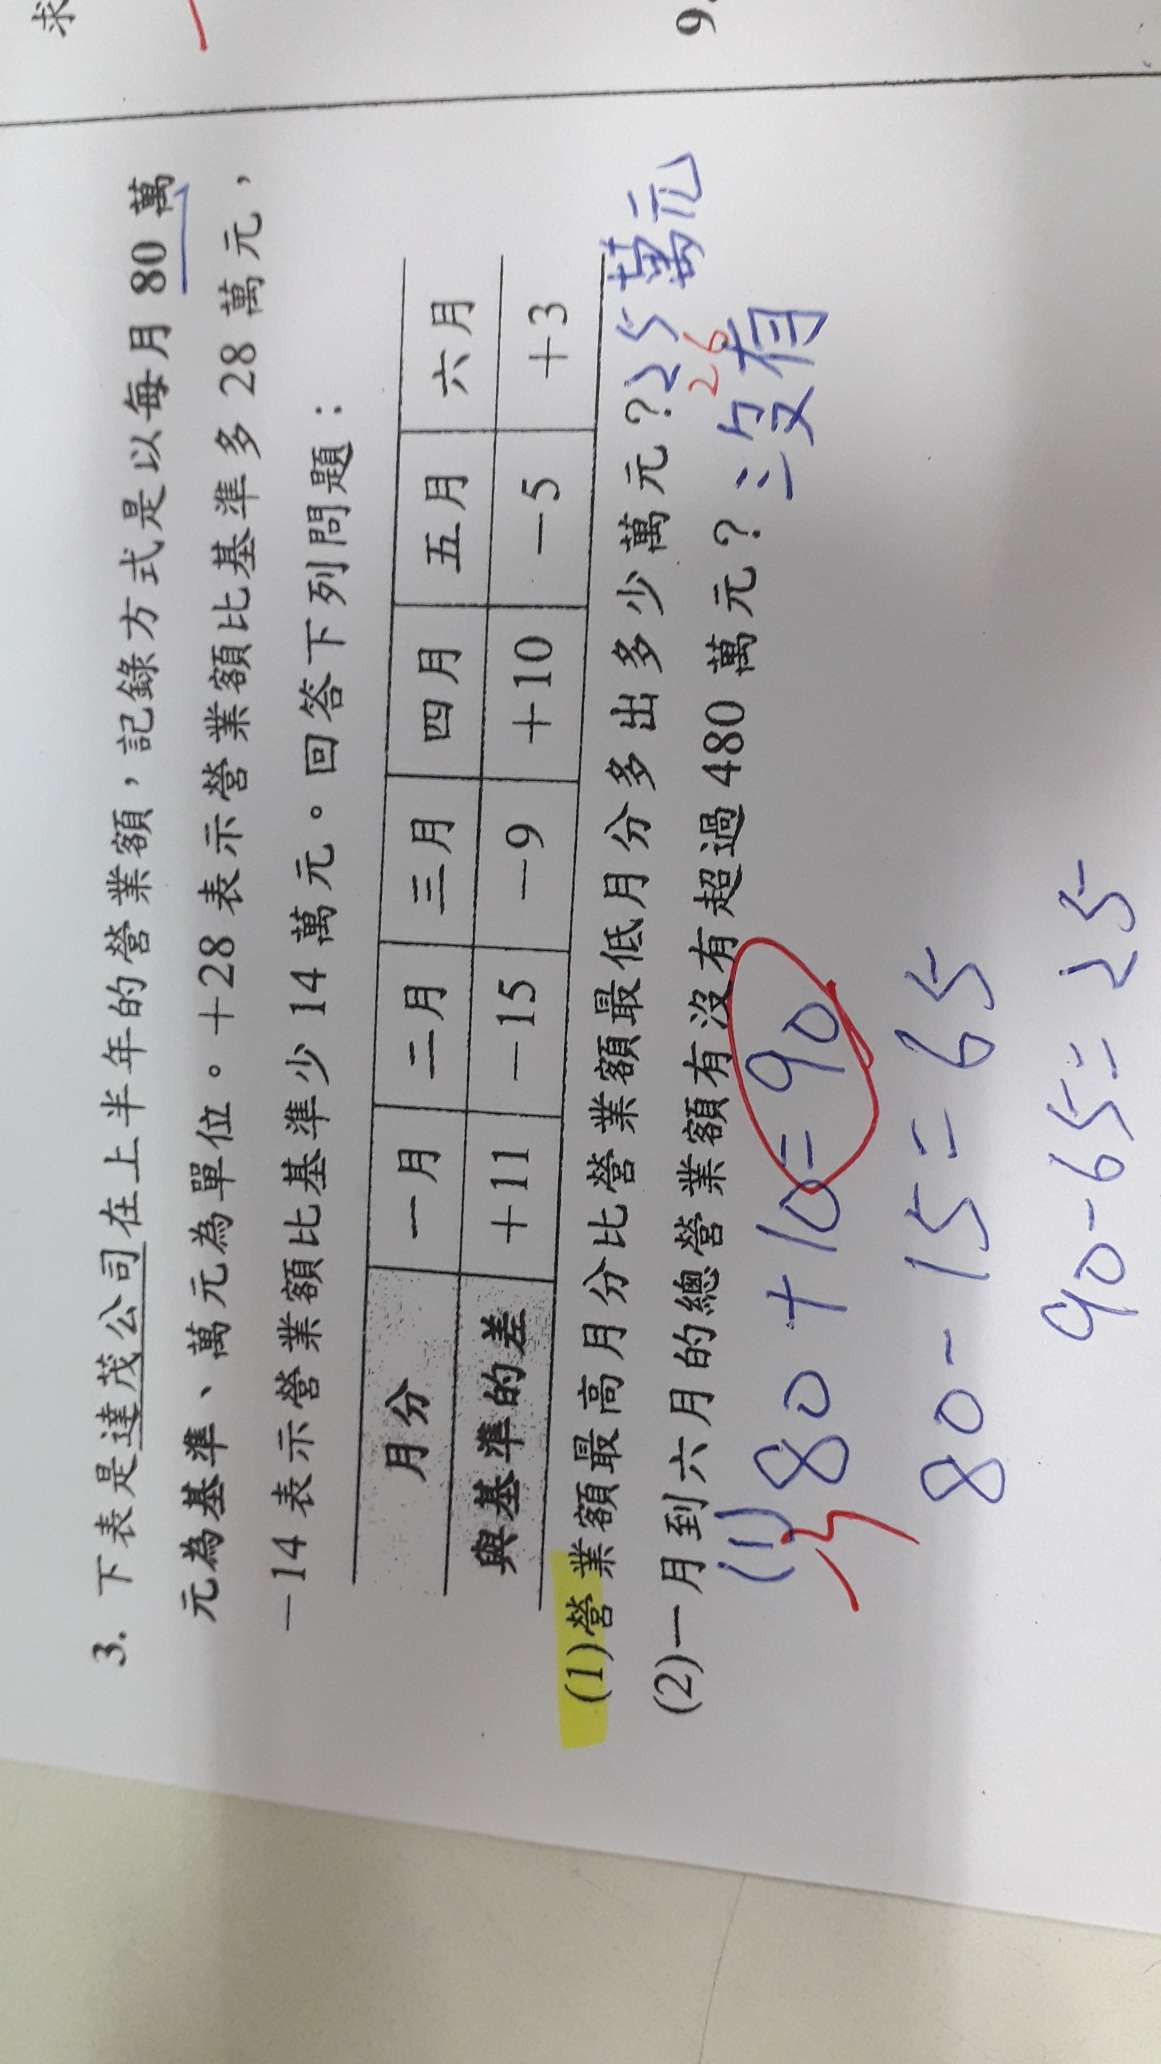 求
9.
3. 下表是達茂公司在上半年的營業額，記錄方式是以每月 80 萬
元為基準、萬元為單位。+28 表示營業額比基準多 28 萬元，
−14 表示營業額比基準少 14 萬元。回答下列問題：
月分 一月 二月 三月 四月 五月 六月
與基準的差 +11 −15 −9 +10 −5 +3
(1)營業額最高月分比營業額最低月分多出多少萬元？25萬元
26
(2)一月到六月的總營業額有沒有超過 480 萬元？沒有
(1) 80 + 10 = 90
80 - 15 = 65
90 - 65 = 25